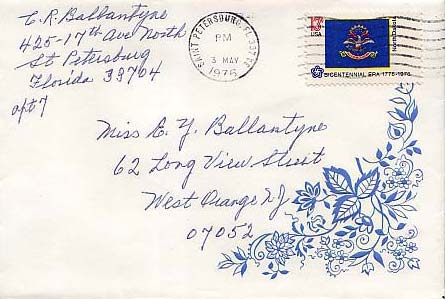 C.R. Ballantyne
425-17th Ave North
St Petersburg
Florida 33704
apt 7
SAINT PETERSBURG, FL
PM
3 MAY
1976
13c
USA
North Dakota
BICENTENNIAL ERA 1776-1976
Miss E. Y. Ballantyne
62 Long View Street
West Orange N.J.
07052